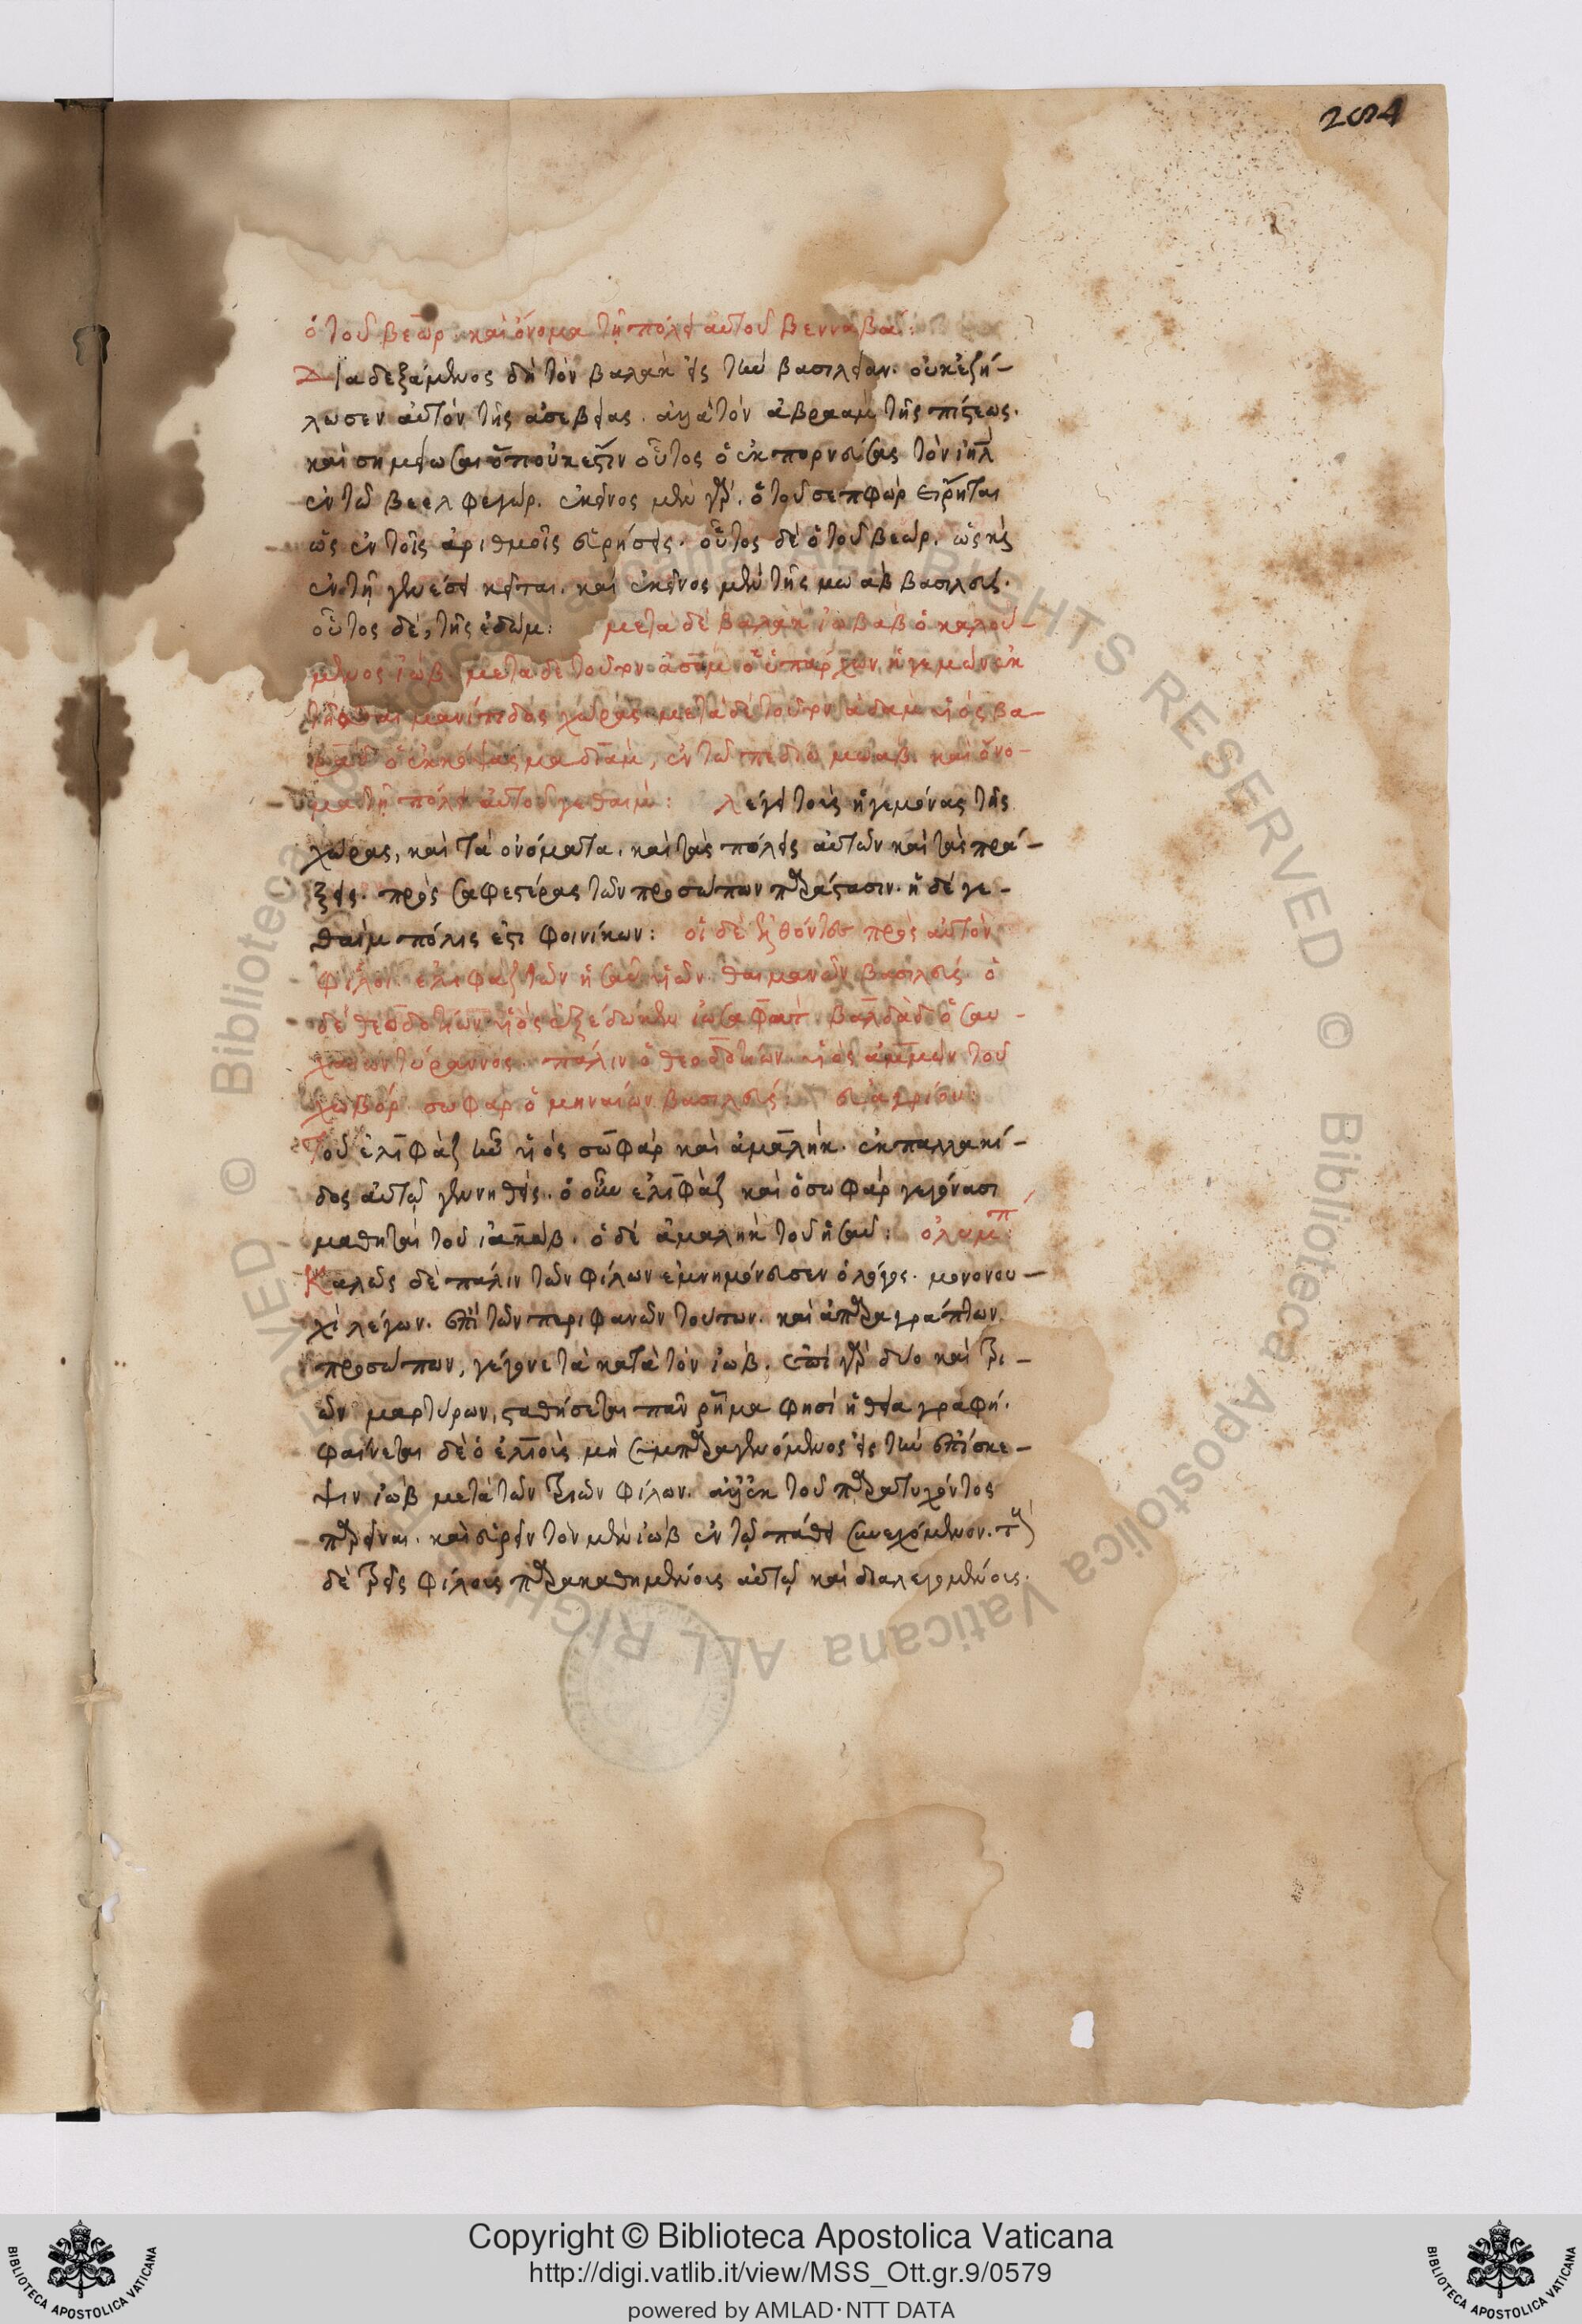 284
ὁ τοῦ βεὼρ· καὶ ὄνομα τῆ πόλει αὐτοῦ βενναβαί:
Διαδεξάμενος δὴ τὸν βαλὰκ εἰς τὴν βασιλείαν. οὐκ ἐζή-
λωσεν αὐτὸν τῆς ἀσεβείας. ἀλλὰ τὸν ἀβραὰμ τῆς πίστεως.
καὶ σημείωσαι ὅτι οὐκ ἔστιν οὗτος ὁ ἐκπορνεύσας τὸν ιηλ
ἐν τῶ βεελφεγώρ. ἐκεῖνος μὲν γὰρ. ὁ τοῦ σεπφὼρ εἴρηται
ὡς ἐν τοῖς ἀριθμοῖς εὑρήσεις. οὗτος δὲ ὁ τοῦ βεώρ. ὡς καὶ
ἐν τῆ γενέσει κεῖται. καὶ ἐκεῖνος μὲν τῆς μωὰβ βασιλεύς.
οὗτος δὲ, τῆς ἐδώμ: μετὰ δὲ βαλὰκ ἰωβὰβ ὁ καλού-
μενος ἰώβ· μετὰ δὲ τοῦτον ἀσὼμ ὁ ὑπάρχων ἡγεμὼν ἐκ
τῆς θαιμανίτιδος χώρας· μετὰ δὲ τοῦτον ἀδὰμ υἱὸς βα-
ρὰδ ὁ ἐκκόψας μαδιὰμ, ἐν τῶ πεδίω μωάβ. καὶ ὄνο-
μα τῆ πόλει αὐτοῦ γεθαίμ: λέγει τοὺς ἡγεμόνας τῆς
χώρας, καὶ τὰ ὀνόματα. καὶ τὰς πόλεις αὐτῶν καὶ τὰς πρά-
ξεις. πρὸς σαφεστέρας τῶν προσώπων παράστασιν. ἡ δὲ γε-
θαὶμ πόλις ἐστὶ φοινίκων: οἱ δὲ ἐλθόντες πρὸς αὐτὸν
φίλοι. ἐλιφὰζ τῶν ἠσαῦ υἱῶν. θαιμανῶν βασιλεύς· ὁ
χαίων τύραννος. παλιν ὁ θεοδοτίων. υἱὸς ἀμμὼν τοῦ
χωβόρ. σωφὰρ ὁ μηναίων βασιλεύς:
Τοῦ ἐλιφὰζ υἱὸς σωφὰρ καὶ ἀμαλήκ. ἐκ παλλακί-
δος αὐτῶ γεννηθείς. ὁ οὖν ἐλιφὰζ καὶ ὁ σωφὰρ γεγόνασι
μαθηταὶ τοῦ ἰακώβ. ὁ δὲ ἀμαλὴκ τοῦ ἠσαῦ: ὀλυμπ
Καλῶς δὲ πάλιν τῶν φίλων ἐμνημόνευσεν ὁ λόγος. μονονου-
χὶ λέγων. ἐπὶ τῶν περιφανῶν τούτων. καὶ ἀπαραγράπτων
προσώπων, γέγονε τὰ κατὰ τὸν ἰώβ. ἐπὶ γὰρ δύο καὶ τρι-
ῶν μαρτύρων, σταθήσεται πᾶν ῥῆμα φησὶ ἡ θεία γραφή.
φαίνεται δὲ ὁ ἐλιοὺς μὴ συμπαραγενόμενος εἰς τὴν ἐπίσκε-
ψιν ἰὼβ μετὰ τῶν τριῶν φίλων. ἀλλ' ἐκ τοῦ παρατυχόντος
παρεῖναι. καὶ εὑρεῖν τὸν μὲν ἰὼβ ἐν τῶ πάθει συνεχόμενον. τοὺς
δὲ τρεῖς φίλους παρακαθημένους αὐτῶ καὶ διαλεγομένους.
Copyright © Biblioteca Apostolica Vaticana
http://digi.vatlib.it/view/MSS_Ott.gr.9/0579
powered by AMLAD·NTT DATA